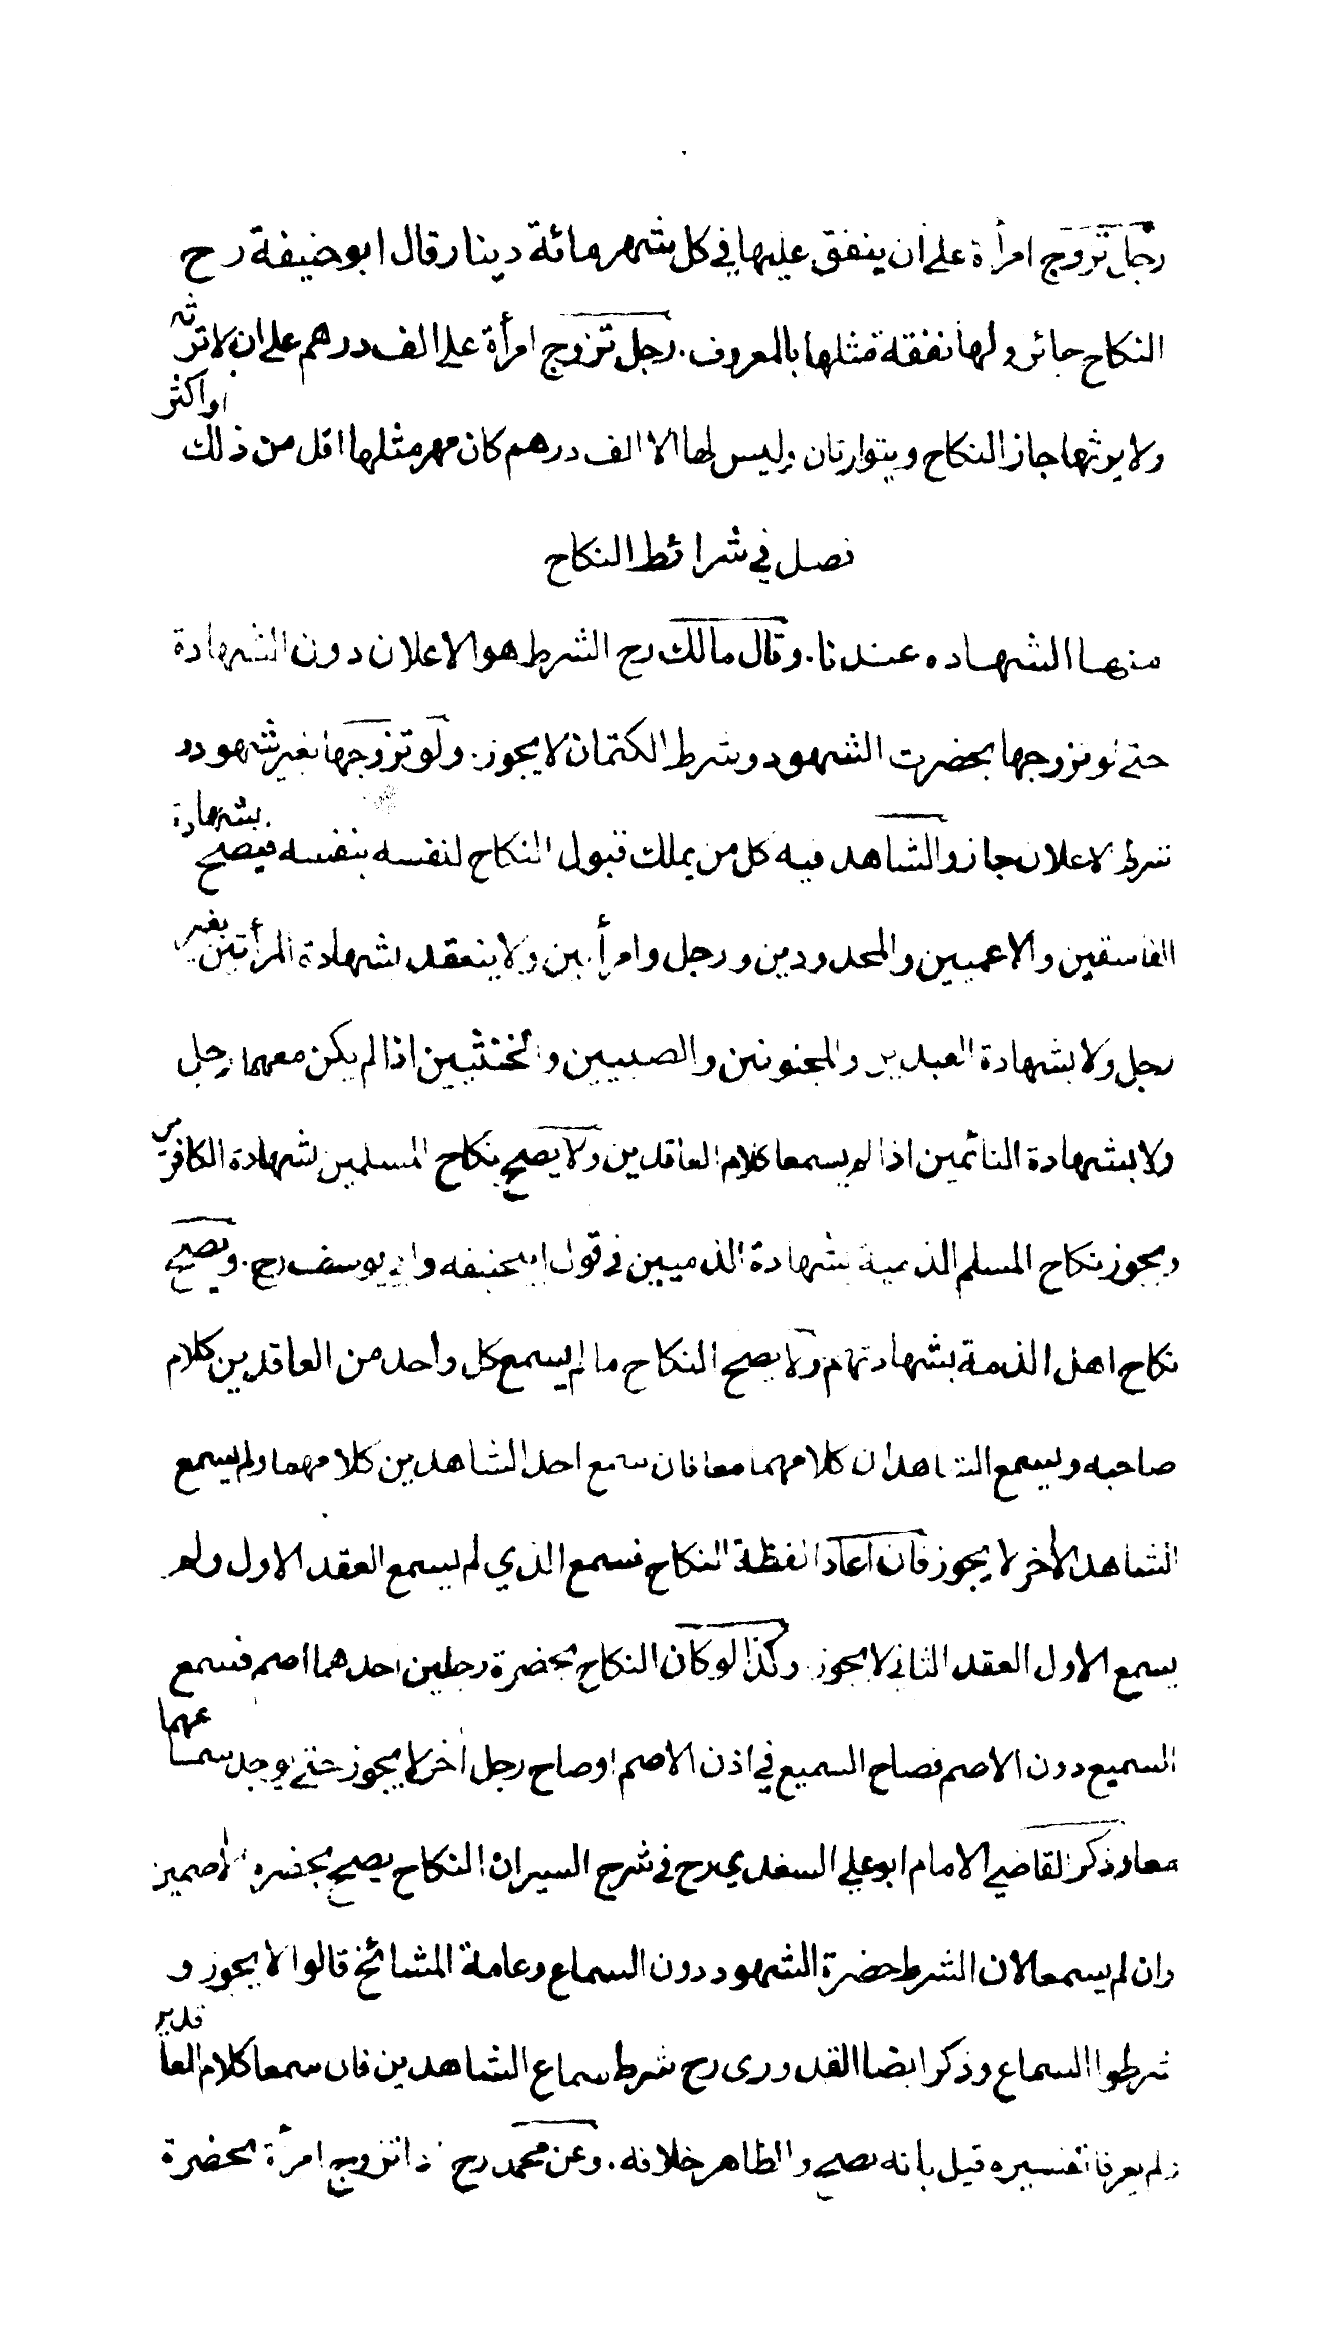 رجل تزوج امرأة على ان ينفق عليها في كل شهر مائة دينار قال ابو حنيفة رح
النكاح جائز ولها نفقة مثلها بالمعروف. رجل تزوج امرأة على الف درهم على ان لا ترثه
ولا يرثها جاز النكاح ويتوارثان وليس لها الا الف درهم كان مهر مثلها اقل من ذلك او اكثر
فصل في شرائط النكاح
منها الشهاده عندنا. وقال مالك رح الشرط هو الاعلان دون الشهادة
حتى لو تزوجها بحضرت الشهود وشرط الكتمان لا يجوز. ولو تزوجها بغير شهود و
شرط الاعلان جاز والشاهد فيه كل من يملك قبول النكاح لنفسه بنفسه فيصح بشهادة
الفاسقين والاعميين والمحدودين ورجل وامرأتين ولا ينعقد بشهادة المرأتين بغير
رجل ولا بشهادة العبدين والمجنونين والصبيين والخنثيين اذا لم يكن معهما رجل
ولا بشهادة النائمين اذا لم يسمعا كلام العاقدين ولا يصح نكاح المسلمين بشهادة الكافرين
ويجوز نكاح المسلم الذمية بشهادة الذميين في قول ابيحنيفه وابي يوسف رح. ويصح
نكاح اهل الذمة بشهادتهم ولا يصح النكاح ما لم يسمع كل واحد من العاقدين كلام
صاحبه ويسمع الشاهدان كلامهما معا فان سمع احد الشاهدين كلامهما ولم يسمع
الشاهد الأخر لا يجوز فان اعاد الفظة النكاح فسمع الذي لم يسمع العقد الاول ولم
يسمع الاول العقد الثاني لا يجوز وكذا لو كان النكاح بحضرة رجلين احدهما اصم فسمع
السميع دون الاصم فصاح السميع في اذن الاصم او صاح رجل أخر لا يجوز حتى يوجد سماعهما
معا وذكر القاضي الامام ابو علي السغدي رح في شرح السير ان النكاح يصح بحضره الاصمين
وان لم يسمعا لان الشرط حضرة الشهود دون السماع وعامة المشائخ قالوا لا يجوز و
شرطوا السماع وذكر ايضا القدوري رح شرط سماع الشاهدين فان سمعا كلام العاقدين
ولم يعرفا تفسيره قيل بانه يصح والظاهر خلافه. وعن محمد رح اذا تزوج امرأة بحضرة